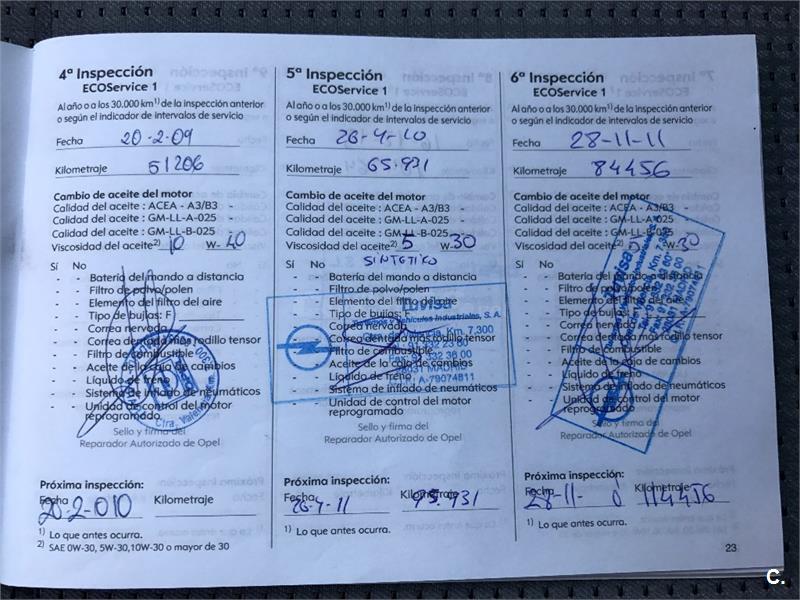 4ª Inspección
ECOService 1
Al año o a los 30.000 km1) de la inspección anterior
o según el indicador de intervalos de servicio
Fecha 20-2-09
Kilometraje 51206
Cambio de aceite del motor
Calidad del aceite : ACEA - A3/B3 -
Calidad del aceite : GM-LL-A-025 -
Calidad del aceite : GM-LL-B-025 -
Viscosidad del aceite2) 10 W- 40
Sí No
- - Batería del mando a distancia
- - Filtro de polvo/polen
- - Elemento del filtro del aire
- - Tipo de bujías: F)
- - Correa nervada
- - Correa dentada más rodillo tensor
- - Filtro de combustible
- - Aceite de la caja de cambios
- - Líquido de freno
- - Sistema de inflado de neumáticos
- - Unidad de control del motor
reprogramado
Sello y firma del
Reparador Autorizado de Opel
Ctra.
Próxima inspección:
Fecha Kilometraje
20-2-010
1) Lo que antes ocurra.
2) SAE 0W-30, 5W-30,10W-30 o mayor de 30
5ª Inspección
ECOService 1
Al año o a los 30.000 km1) de la inspección anterior
o según el indicador de intervalos de servicio
Fecha 26-4-10
Kilometraje 65.931
Cambio de aceite del motor
Calidad del aceite : ACEA - A3/B3 -
Calidad del aceite : GM-LL-A-025 -
Calidad del aceite : GM-LL-B-025 -
Viscosidad del aceite2) 5 W- 30
SINTETICO
Sí No
- - Batería del mando a distancia
- - Filtro de polvo/polen
- - Elemento del filtro del aire
- - Tipo de bujías:
- - Correa nervada
- - Correa dentada más rodillo tensor
- - Filtro de combustible
- - Aceite de la caja de cambios
- - Líquido de freno
- - Sistema de inflado de neumáticos
- - Unidad de control del motor
reprogramado
Luvisa
Vehículos Industriales, S. A.
Km. 7,300
28031 MADRID
A-79074811
Sello y firma del
Reparador Autorizado de Opel
Próxima inspección:
Fecha Kilometraje
26-4-11 95.931
1) Lo que antes ocurra.
6ª Inspección
ECOService 1
Al año o a los 30.000 km1) de la inspección anterior
o según el indicador de intervalos de servicio
Fecha 28-11-11
Kilometraje 84456
Cambio de aceite del motor
Calidad del aceite : ACEA - A3/B3 -
Calidad del aceite : GM-LL-A-025 -
Calidad del aceite : GM-LL-B-025 -
Viscosidad del aceite2) 5 W- 30
Sí No
- - Batería del mando a distancia
- - Filtro de polvo/polen
- - Elemento del filtro del aire
- - Tipo de bujías:
- - Correa nervada
- - Correa dentada más rodillo tensor
- - Filtro de combustible
- - Aceite de la caja de cambios
- - Líquido de freno
- - Sistema de inflado de neumáticos
- - Unidad de control del motor
reprogramado
Sello y firma del
Reparador Autorizado de Opel
Próxima inspección:
Fecha Kilometraje
28-11- 114456
1) Lo que antes ocurra.
23
C.